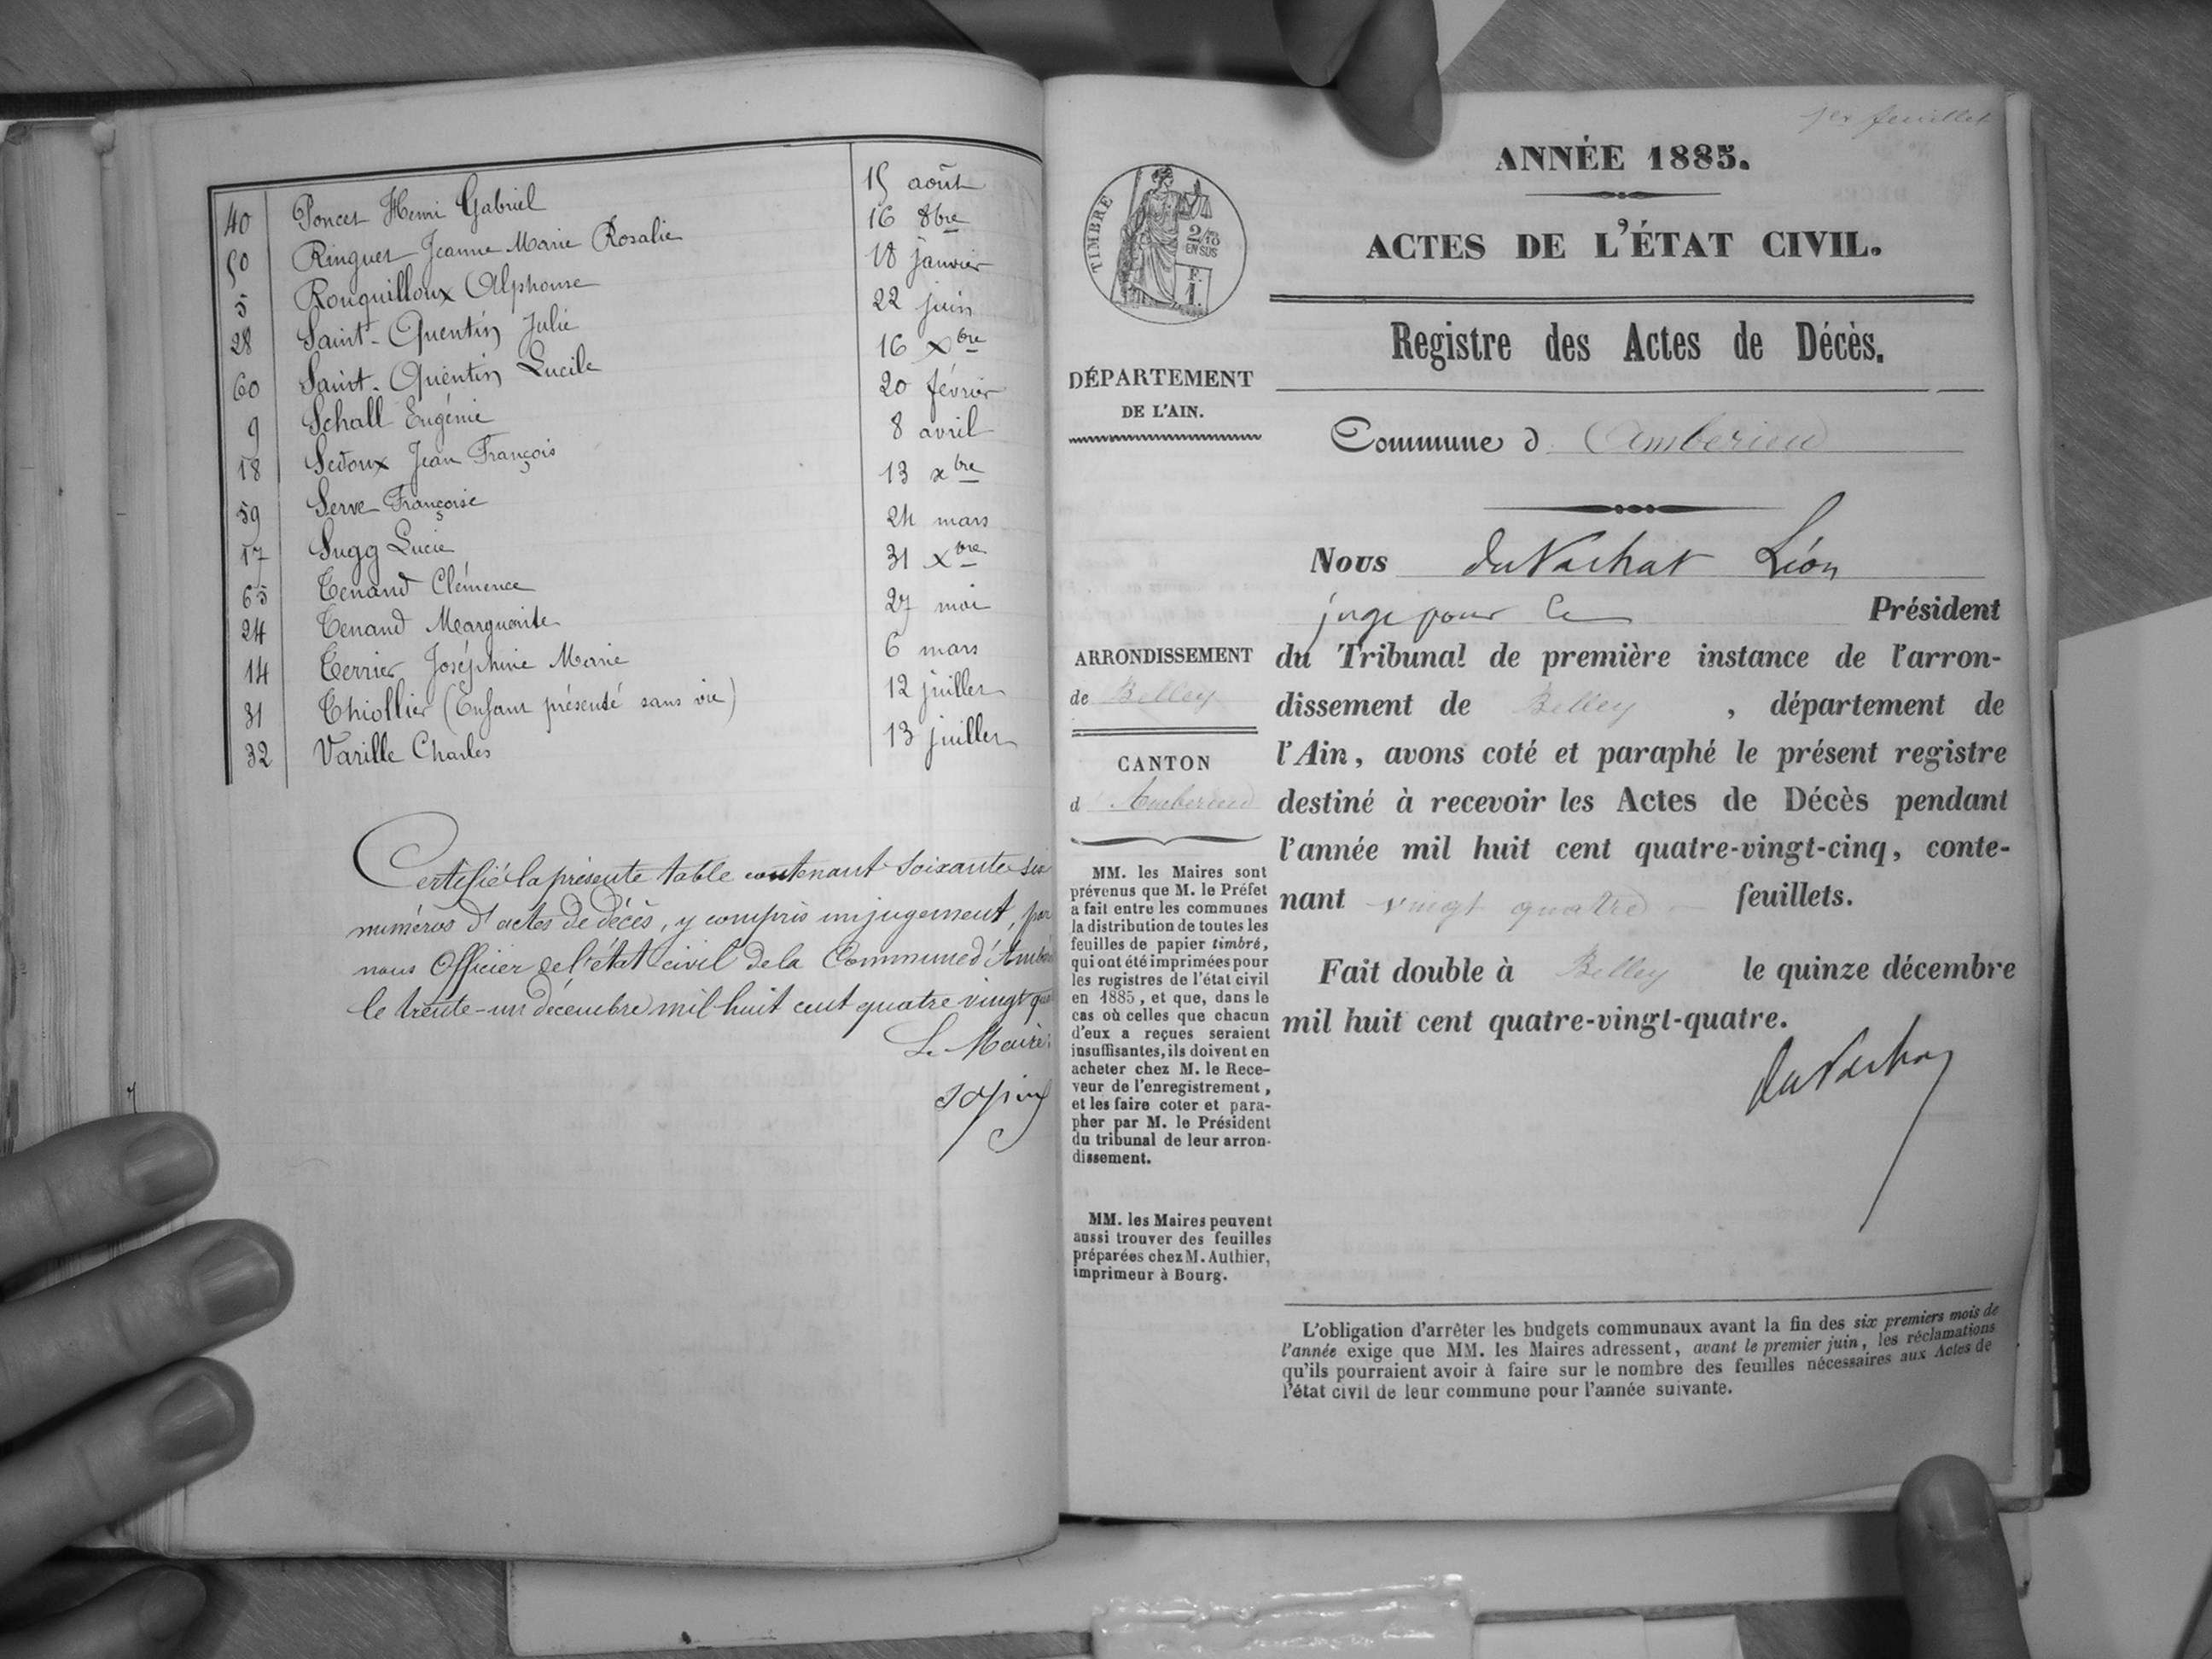 40 Poncet Henri Gabriel 15 août
50 Ringuet Jeanne Marie Rosalie 16 8bre
5 Ronquilloux Alphonse 18 janvier
28 Saint-Quentin Julie 22 juin
60 Saint-Quentin Lucile 16 Xbre
9 Schall Eugénie 20 février
18 Sedoux Jean François 8 avril
59 Serve Françoise 13 xbre
17 Sugg Lucie 24 mars
65 Tenand Clémence 31 Xbre
24 Tenand Marguerite 27 mai
14 Terrier Joséphine Marie 6 mars
31 Thiollier (Enfant présenté sans vie) 12 juillet
32 Varille Charles 13 juillet
Certifié la présente table contenant soixante six
numéros d'actes de décès, y compris un jugement, par
nous Officier de l'état civil de la Commune d'Ambé
le trente-un décembre mil huit cent quatre vingt qua
Le Maire
1er feuillet
ANNÉE 1885.
ACTES DE L'ÉTAT CIVIL.
TIMBRE
2/10
EN SUS
F.
1.
Registre des Actes de Décès.
DÉPARTEMENT
DE L'AIN.
Commune d Amberieu
Nous du Vachat Léon
juge pour le Président
du Tribunal de première instance de l'arron-
dissement de Belley, département de
l'Ain, avons coté et paraphé le présent registre
destiné à recevoir les Actes de Décès pendant
l'année mil huit cent quatre-vingt-cinq, conte-
nant vingt quatre feuillets.
Fait double à Belley le quinze décembre
mil huit cent quatre-vingt-quatre.
du Vachat
ARRONDISSEMENT
de Belley
CANTON
d Amberieu
MM. les Maires sont
prévenus que M. le Préfet
a fait entre les communes
la distribution de toutes les
feuilles de papier timbré,
qui ont été imprimées pour
les registres de l'état civil
en 1885, et que, dans le
cas où celles que chacun
d'eux a reçues seraient
insuffisantes, ils doivent en
acheter chez M. le Rece-
veur de l'enregistrement,
et les faire coter et para-
pher par M. le Président
du tribunal de leur arron-
dissement.
MM. les Maires peuvent
aussi trouver des feuilles
préparées chez M. Authier,
imprimeur à Bourg.
L'obligation d'arrêter les budgets communaux avant la fin des six premiers mois de
l'année exige que MM. les Maires adressent, avant le premier juin, les réclamations
qu'ils pourraient avoir à faire sur le nombre des feuilles nécessaires aux Actes de
l'état civil de leur commune pour l'année suivante.